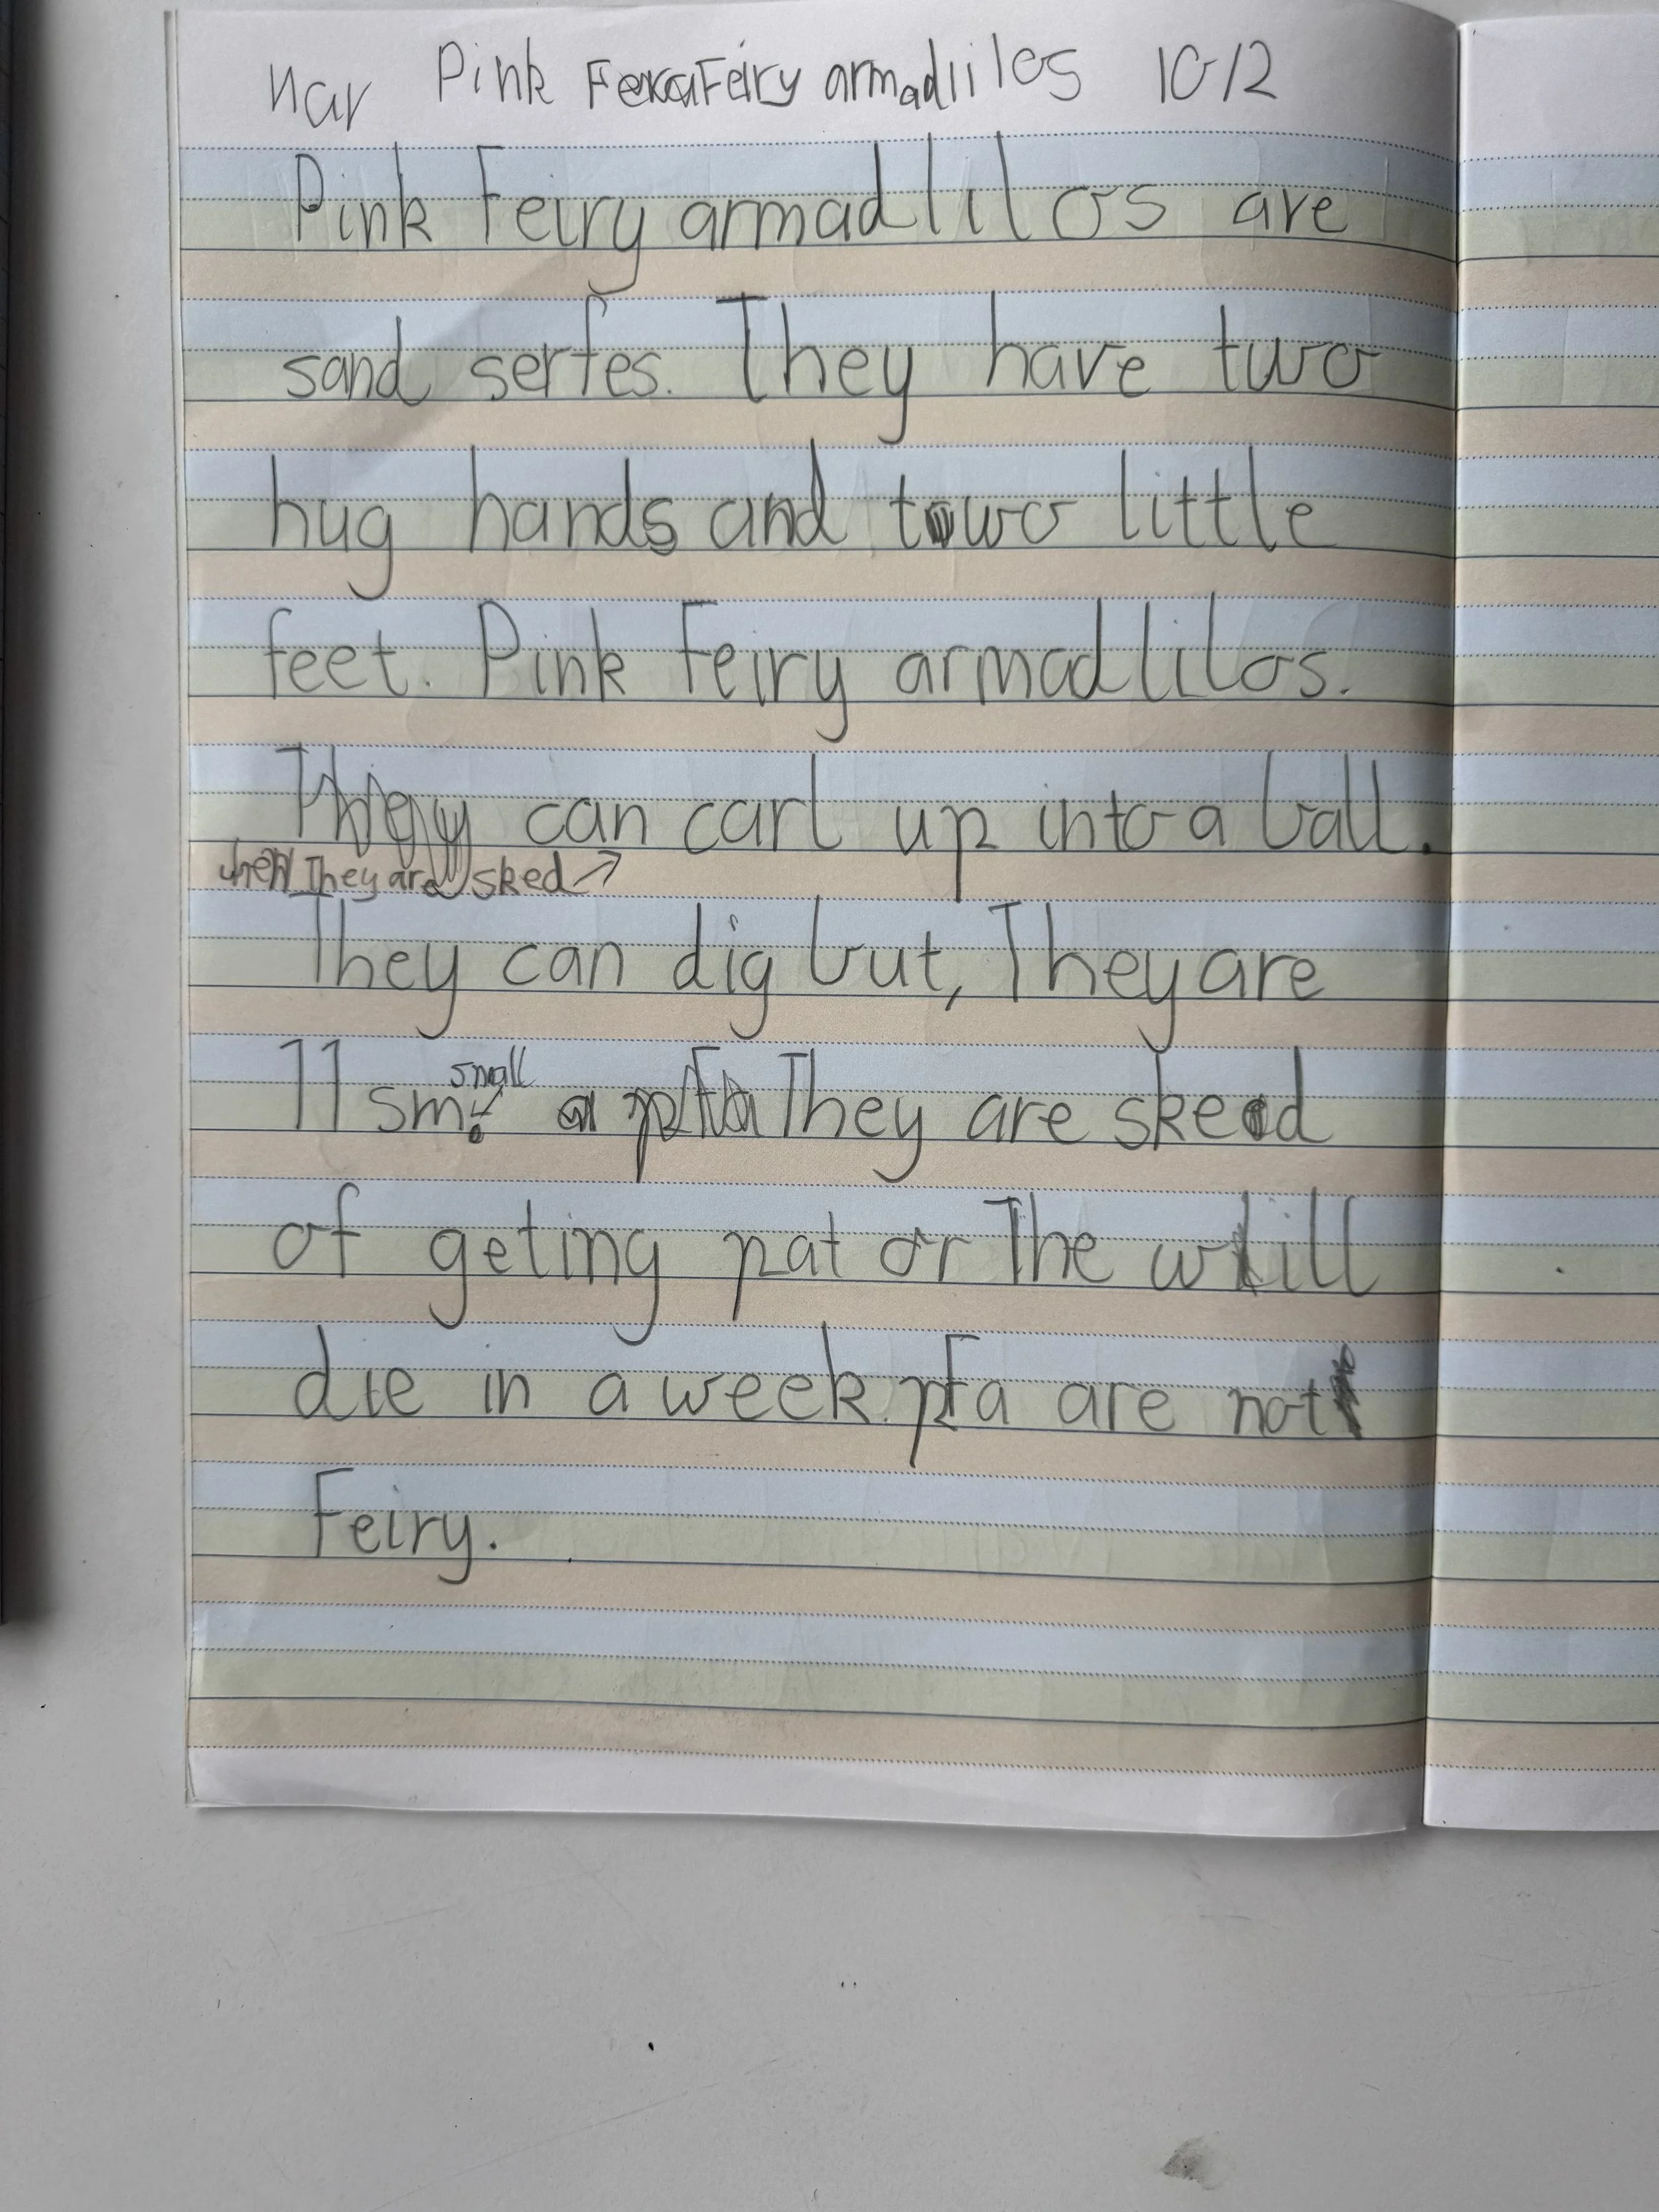 nar Pink Feiry armadlilos 10/2
Pink Feiry armadlilos are
sand serfes. They have two
hug hands and two little
feet. Pink Feiry armadlilos.
They can carl up into a ball.
when They are sked →
They can dig but, They are
11 sm. small They are sked
of geting pat or The will
die in a week. pfa are not
Feiry.